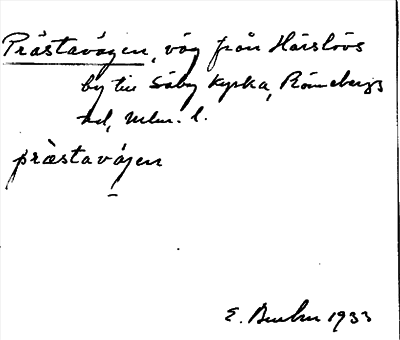 Prästavägen, väg från Härslövs
by till Säby kyrka, Rönnebergs
hd, Mlm. l.
prästavägen
E. 1933